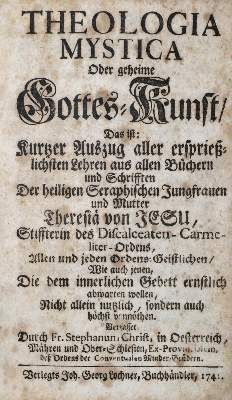 THEOLOGIA
MYSTICA
Oder geheime
Gottes-Kunst/
Das ist:
Kurtzer Auszug aller ersprießlichsten Lehren aus allen Büchern
und Schrifften
Der heiligen Seraphischen Jungfrauen
und Mutter
Theresiä von JESU,
Stiffterin des Discalceaten-Carmeliter-Ordens,
Allen und jeden Ordens-Geistlichen/
Wie auch jenen,
Die dem innerlichen Gebett ernstlich
abwarten wollen,
Nicht allein nutzlich, sondern auch
höchst vonnöthen.
Verfasset
Durch Fr. Stephanum Christ, in Oesterreich,
Mähren und Ober-Schlesien, Ex-Provincialem,
deß Ordens der Conventualen Minder-Brüdern.
Verlegts Joh. Georg Lochner, Buchhändler, 1741.